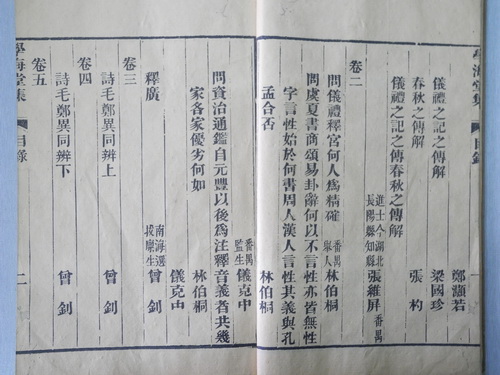 學海堂集 目錄
儀禮之記之傳解 鄭灝若
春秋之傳解 梁國珍
儀禮之記之傳春秋之傳解 張杓
進士今湖北長陽縣知縣張維屏番禺
卷二
問儀禮釋宮何人爲精確 番禺舉人林伯桐
問虞夏書商頌易卦辭何以不言性亦皆無性
字言性始於何書周人漢人言性其義與孔
孟合否 林伯桐
番禺監生儀克中
問資治通鑑自元豐以後爲注釋音義者共幾
家各家優劣何如 林伯桐
儀克中
釋廣 南海選拔廩生曾釗
卷三
詩毛鄭異同辨上 曾釗
卷四
詩毛鄭異同辨下 曾釗
卷五
學海堂集 目錄 二